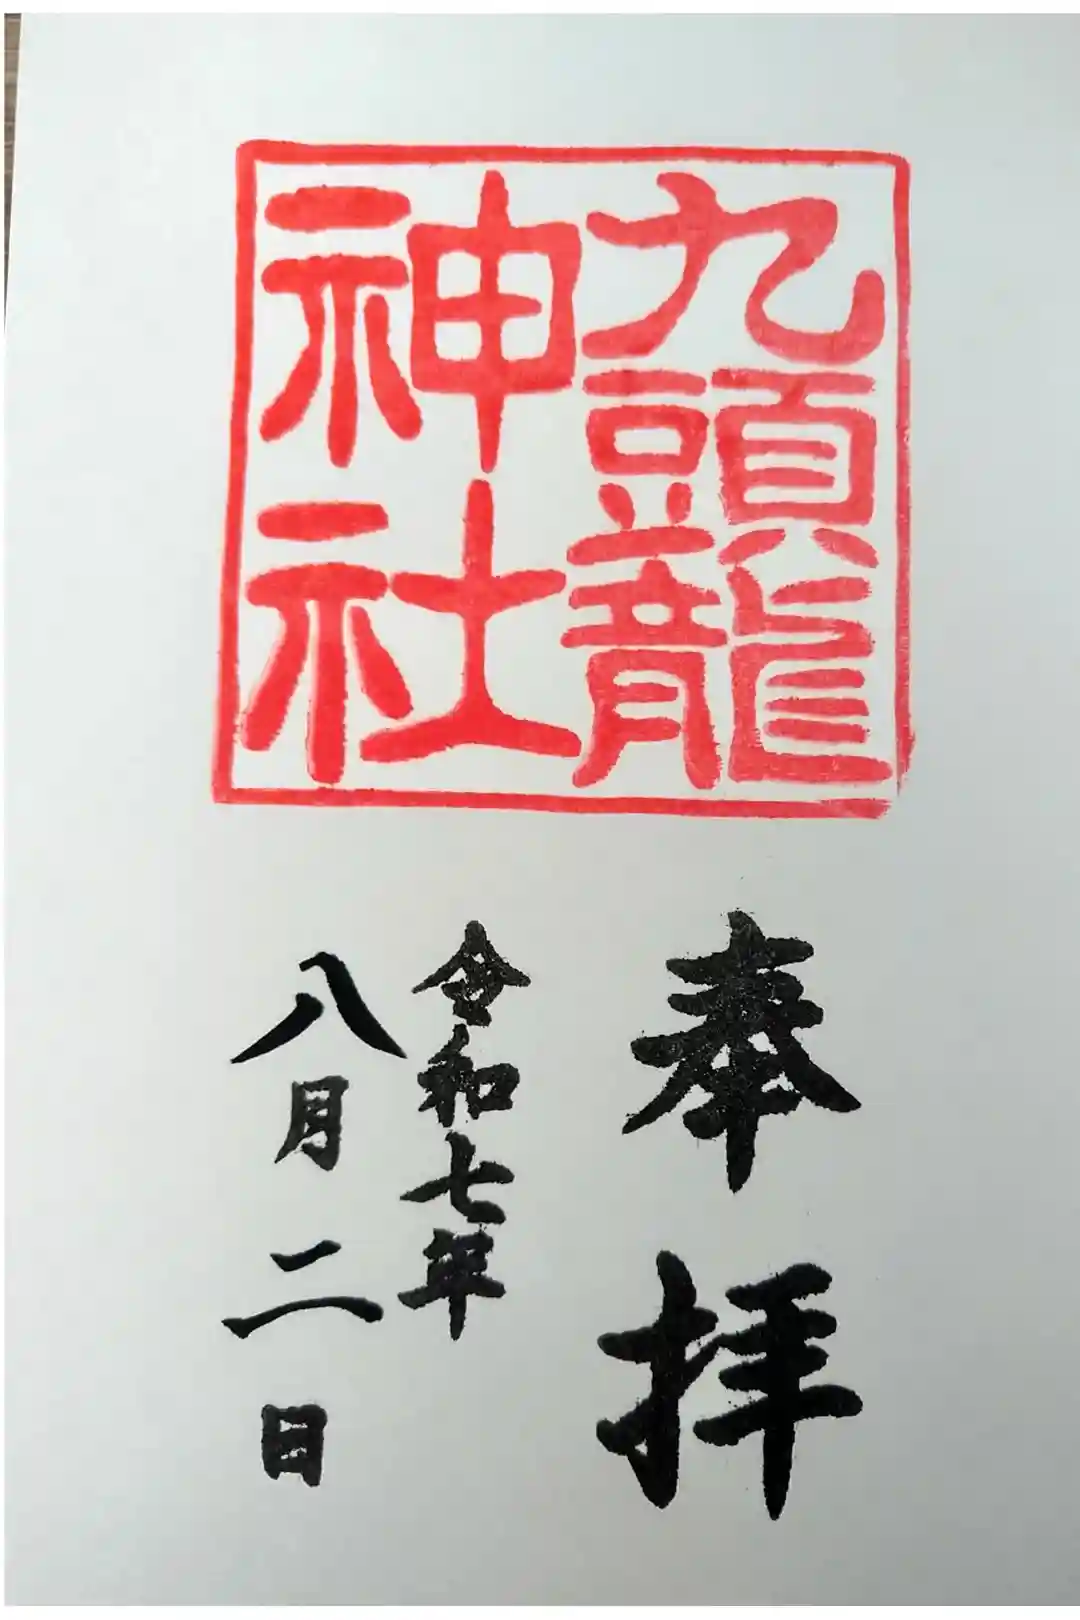 九頭龍
神社
奉拝
令和七年
八月二日